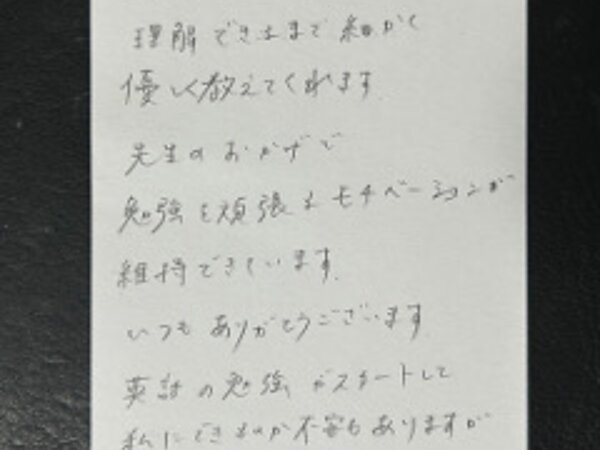 理解できるまで細かく
優しく教えてくれます。
先生のおかげで
勉強を頑張るモチベーションが
維持できています。
いつもありがとうございます。
英語の勉強がスタートして
私にできるのか不安もありますが